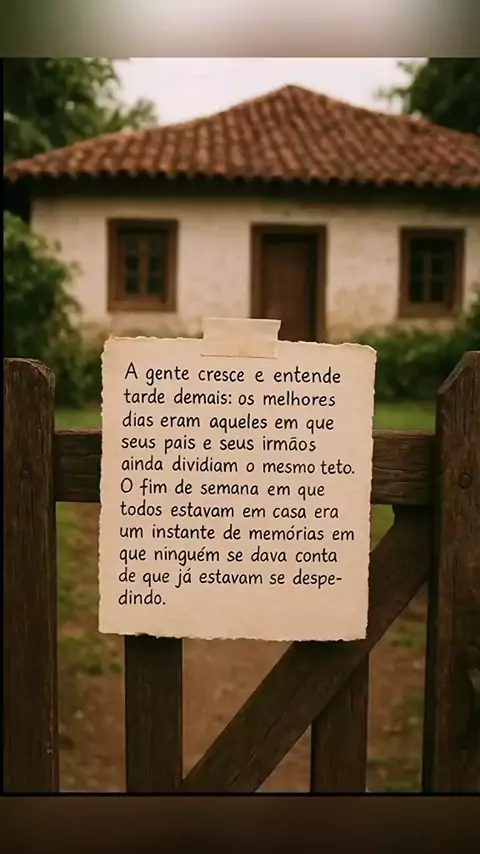 A gente cresce e entende
tarde demais: os melhores
dias eram aqueles em que
seus pais e seus irmãos
ainda dividiam o mesmo teto.
O fim de semana em que
todos estavam em casa era
um instante de memórias em
que ninguém se dava conta
de que já estavam se despe-
dindo.